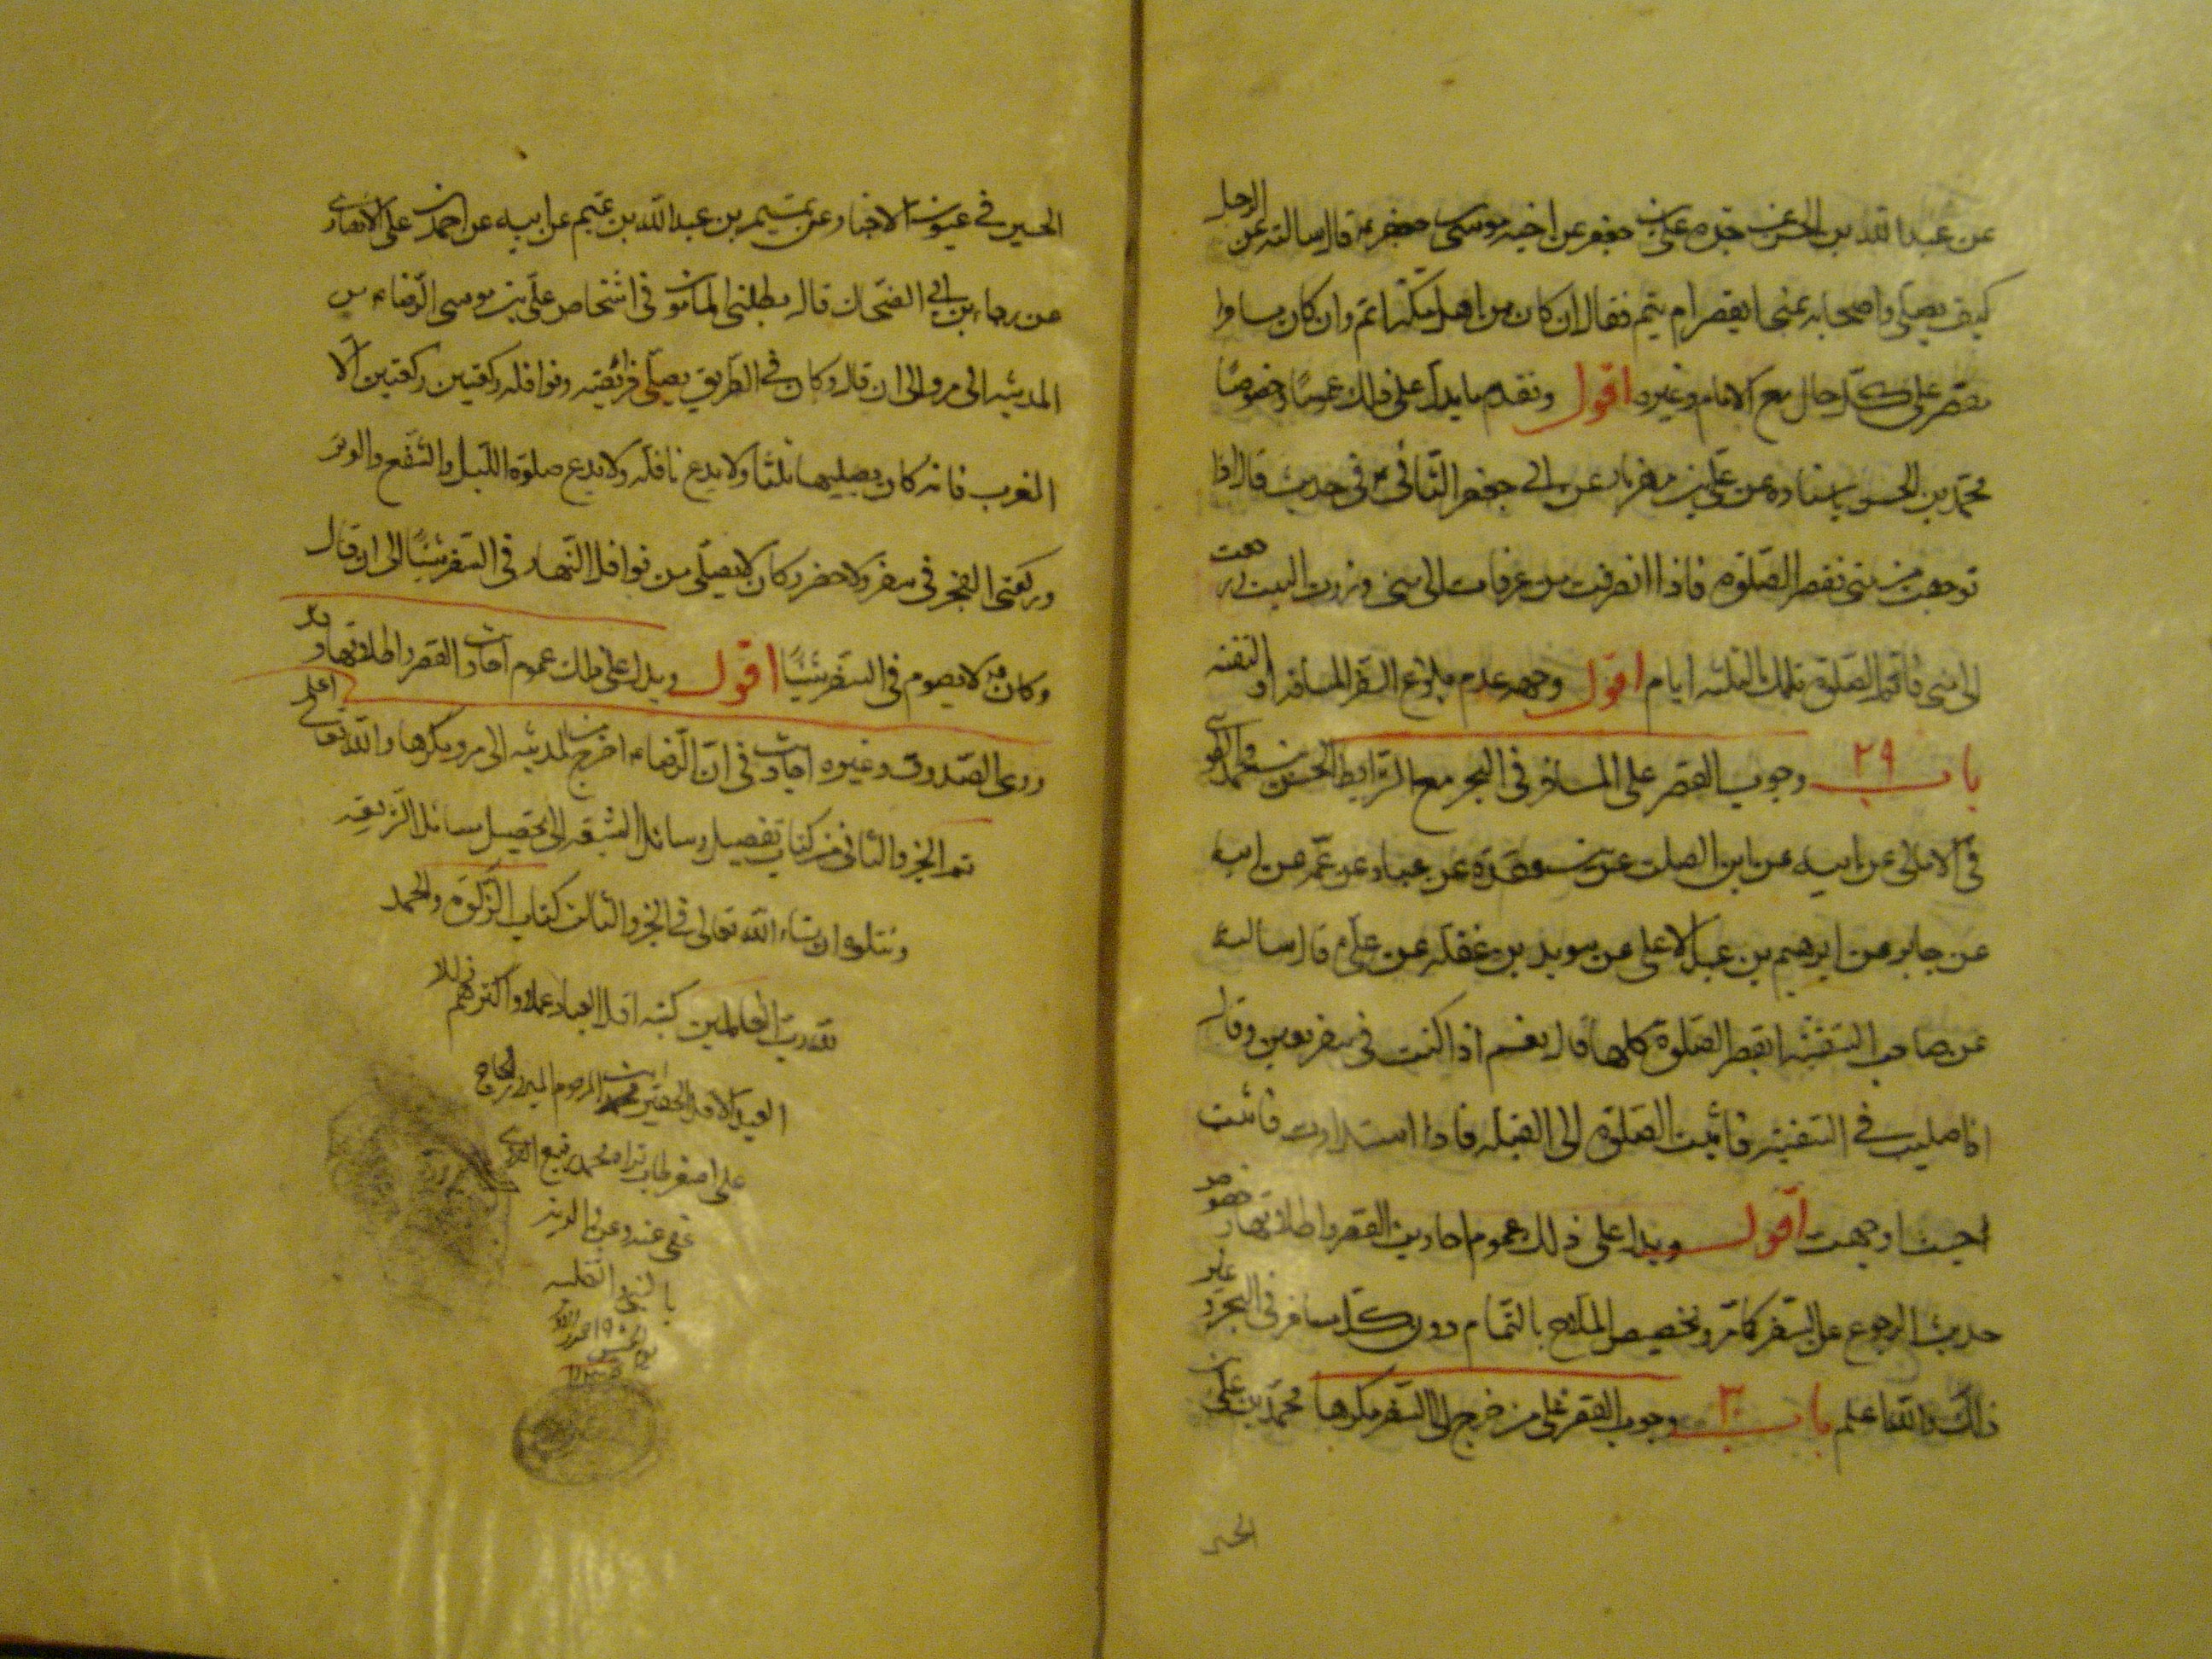 عن عبد الله بن الحسن عن جده علي بن جعفر عن اخيه موسى بن جعفر ع قال سالته عن الرجل
كيف يصلي واصحابه بمنى ايقصر ام يتم فقال ان كان من اهل مكة اتم وان كان مسافرا
قصر على كل حال مع الامام وغيره اقول وتقدم ما يدل على ذلك عموما وخصوصا
محمد بن الحسن باسناده عن علي بن مهزيار عن ابي جعفر الثاني ع في حديث قال اذا
توجهت من منى فقصر الصلوة فاذا انصرفت من عرفات الى منى وزرت البيت ورجعت
الى منى فاتم الصلوة تلك الثلثه ايام اقول وجهه عدم بلوغ السفر المسافه او التقيه
باب ٢٩ وجوب القصر على المسافر في البحر مع الشرايط الحسن بن محمد الطوسي
في الامالي عن ابيه عن ابن الصلت عن ابن عقدة عن عباد عن عمه عن ابيه
عن جابر عن ابرهيم بن عبد الاعلى عن سويد بن غفله عن علي ع قال سالته
عن صاحب السفينه ايقصر الصلوة كلها قال نعم اذا كنت في سفر وقال
اذا صليت في السفينه فاثبت الصلوة الى القبله فاذا استدارت فاثبت
حيث اوجهت اقول ويدل على ذلك عموم احاديث القصر واطلاقها وخصوص
حديث الرجوع عن السفر كما مر وتخصيص الملاح بالتمام دون كل مسافر في البحر وغير
ذلك والله اعلم باب ٣٠ وجوب القصر على من خرج الى السفر مكرها محمد بن علي بن
الحسين
الحسين في عيون الاخبار عن تميم بن عبد الله بن تميم عن ابيه عن احمد بن علي الانصاري
عن رجاء بن ابي الضحاك قال بعثني المامون في اشخاص علي بن موسى الرضا ع من
المدينه الى مرو الى ان قال وكان في الطريق يصلي فرائضه ونوافله ركعتين ركعتين الا
المغرب فانه كان يصليها ثلثا ولا يدع نافلتها ولا يدع صلوة الليل والشفع والوتر
وركعتي الفجر في سفر ولا حضر وكان لا يصلي من نوافل النهار في السفر شيئا الى ان قال
وكان ع لا يصوم في السفر شيئا اقول ويدل على ذلك عموم احاديث القصر واطلاقها وقد
روى الصدوق وغيره احاديث في ان الرضا ع اخرج من المدينه الى مرو مكرها والله تعالى اعلم
تم الجزو الثاني من كتاب تفصيل وسائل الشيعه الى تحصيل مسائل الشريعه
ويتلوه ان شاء الله تعالى في الجزو الثالث كتاب الزكوة والحمد
لله رب العالمين كتبه اقل العباد عملا واكثرهم زللا
العبد الاقل الحقير محمد ابن المرحوم الحاج
على اصغر محمد رفيع
عفى عنه وعن والديه
بالنبي